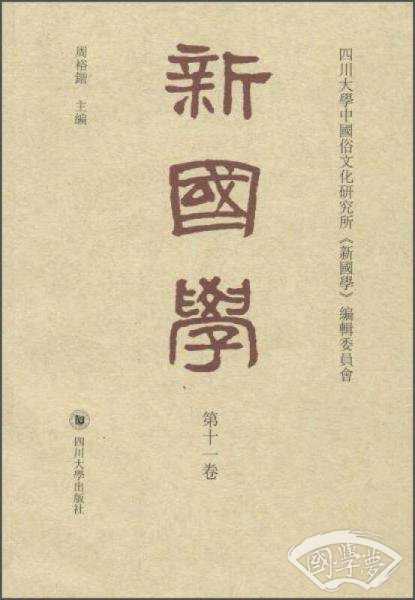 四川大學中國俗文化研究所《新國學》編輯委員會
新國學
第十一卷
周裕鍇 主編
四川大學出版社
國學夢